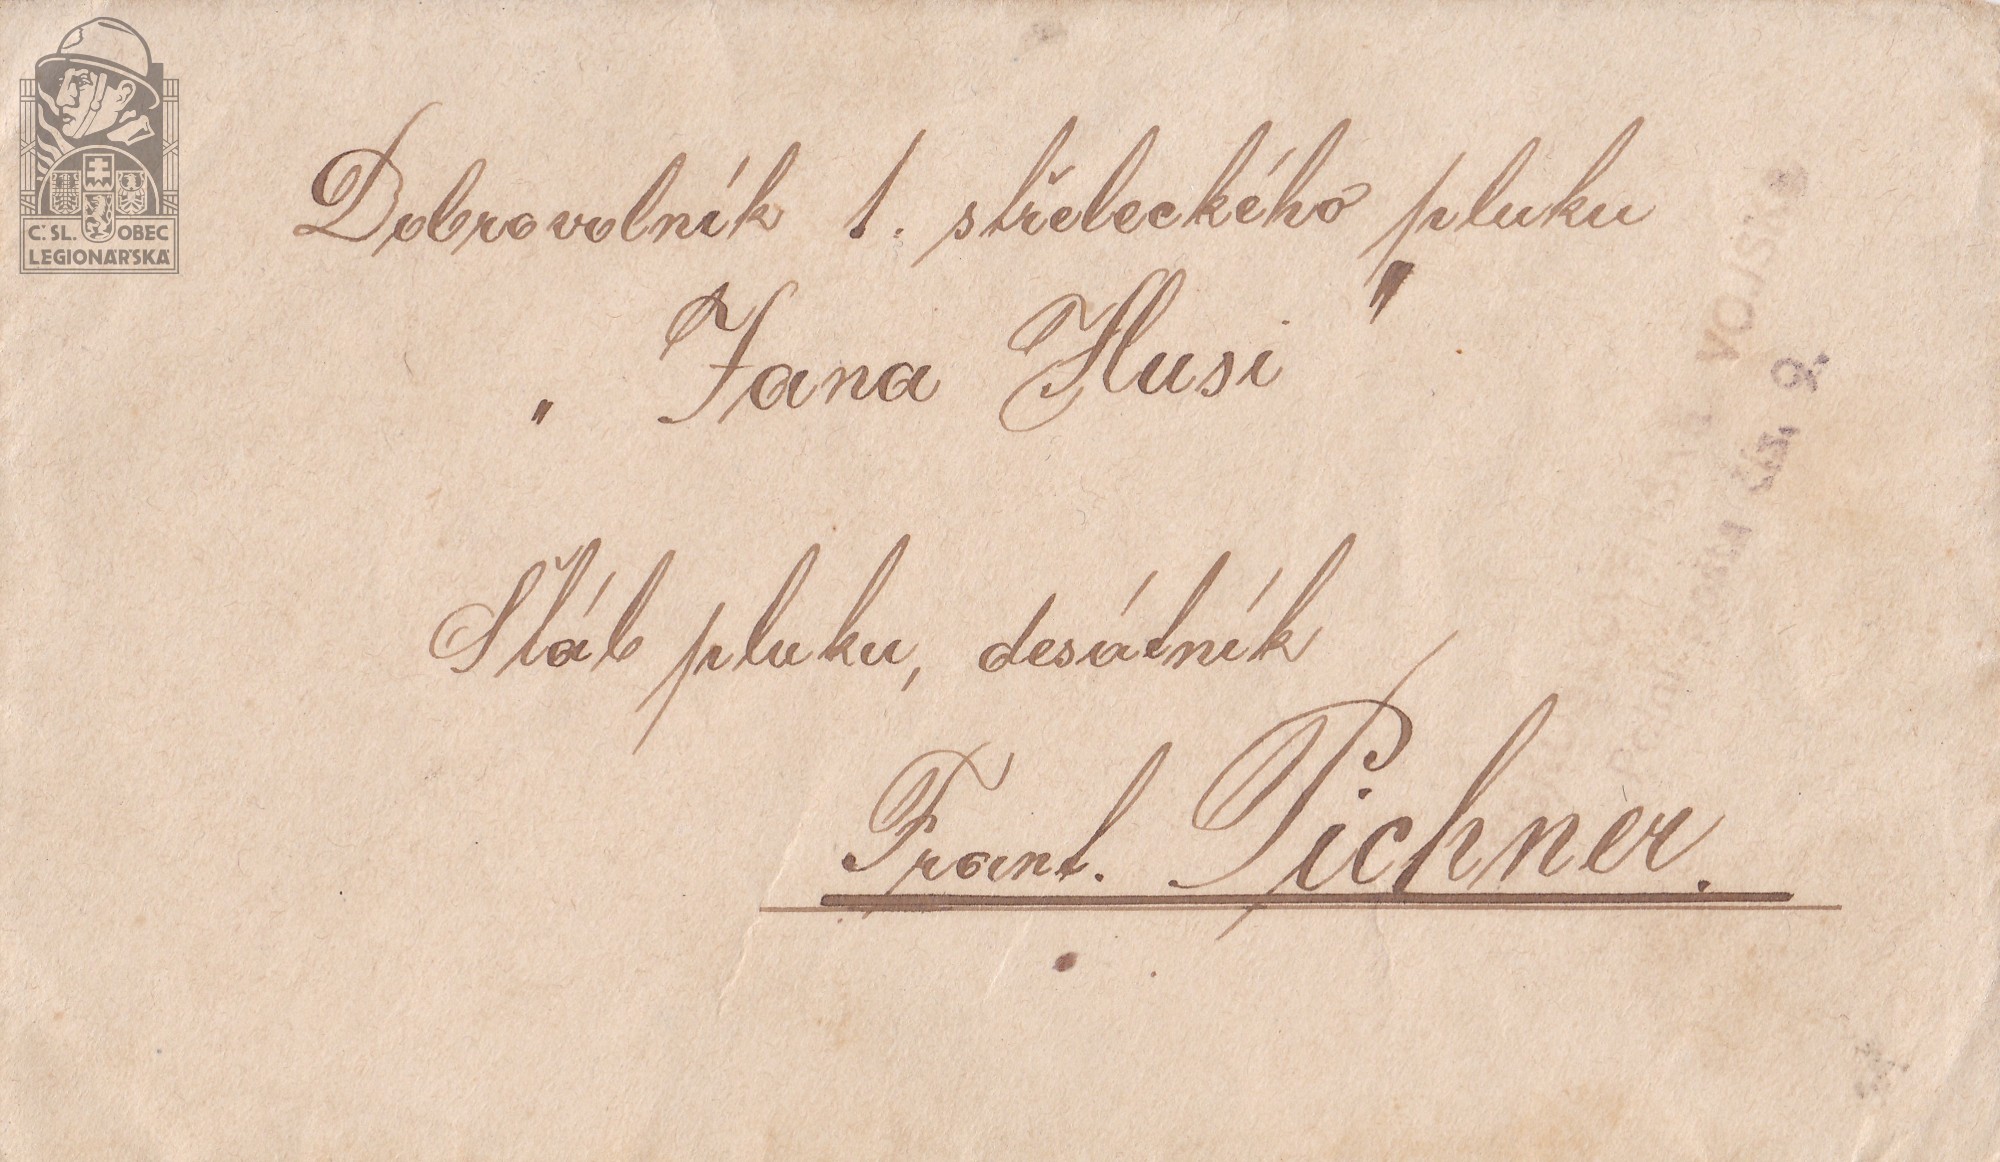 Č.SL. OBEC
LEGIONÁŘSKÁ
Dobrovolník 1. střeleckého pluku
„Jana Husi"
Štáb pluku, desátník
Frant. Pichner.
VOJSK
čís. 9.